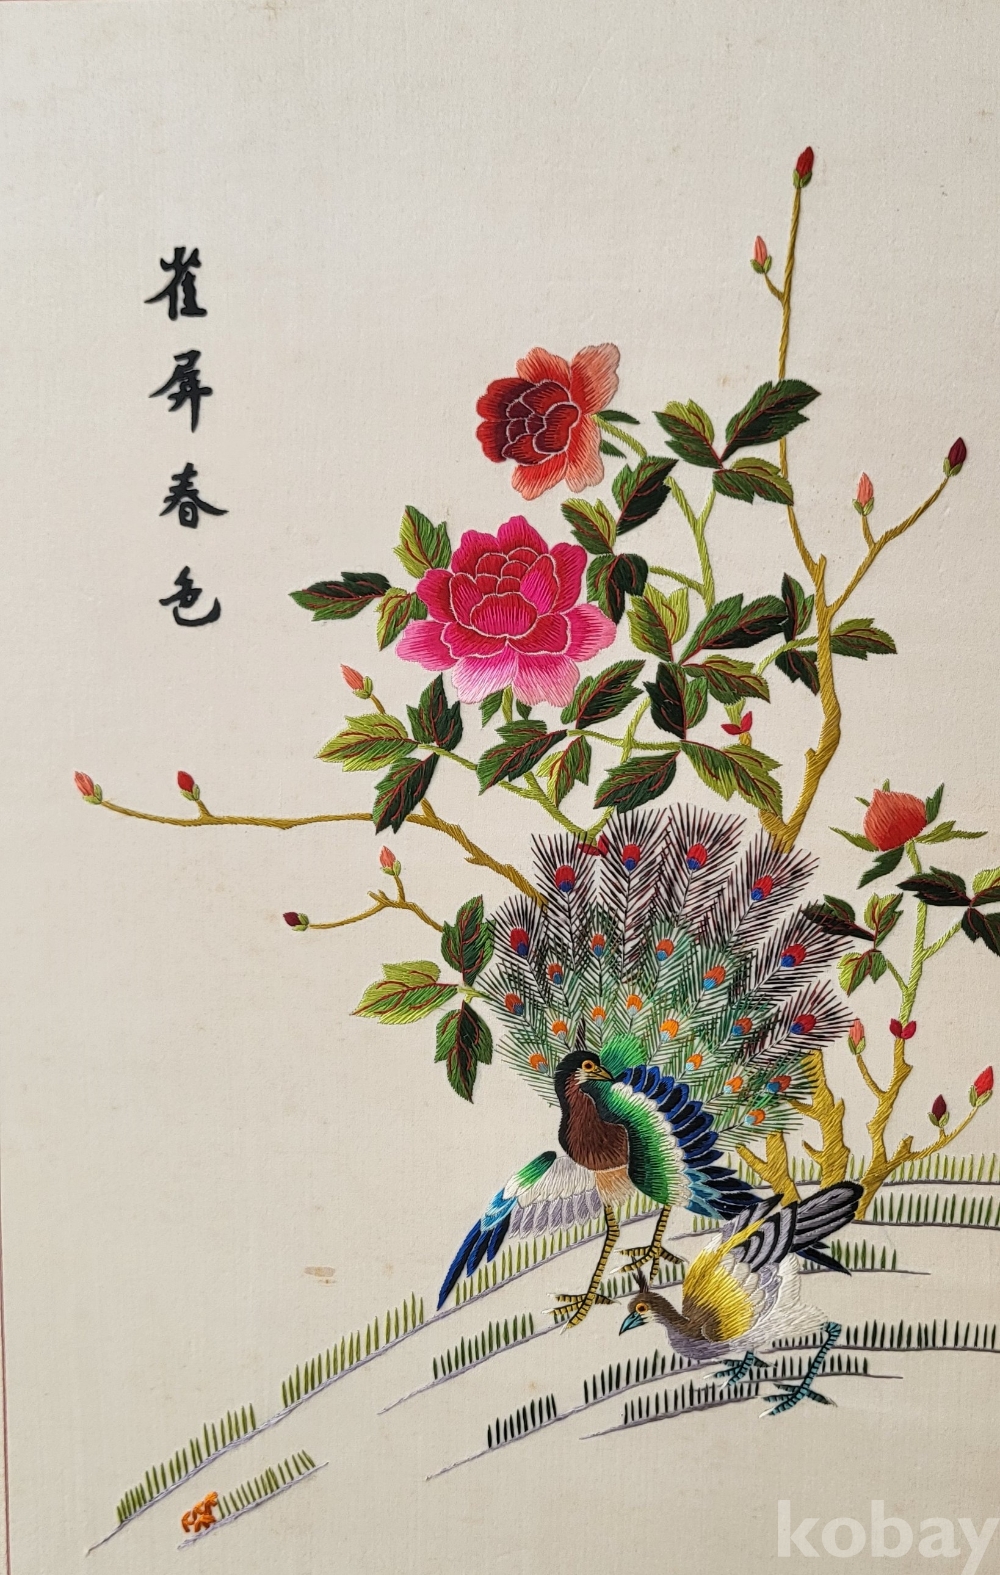 雀屏春色
kobay